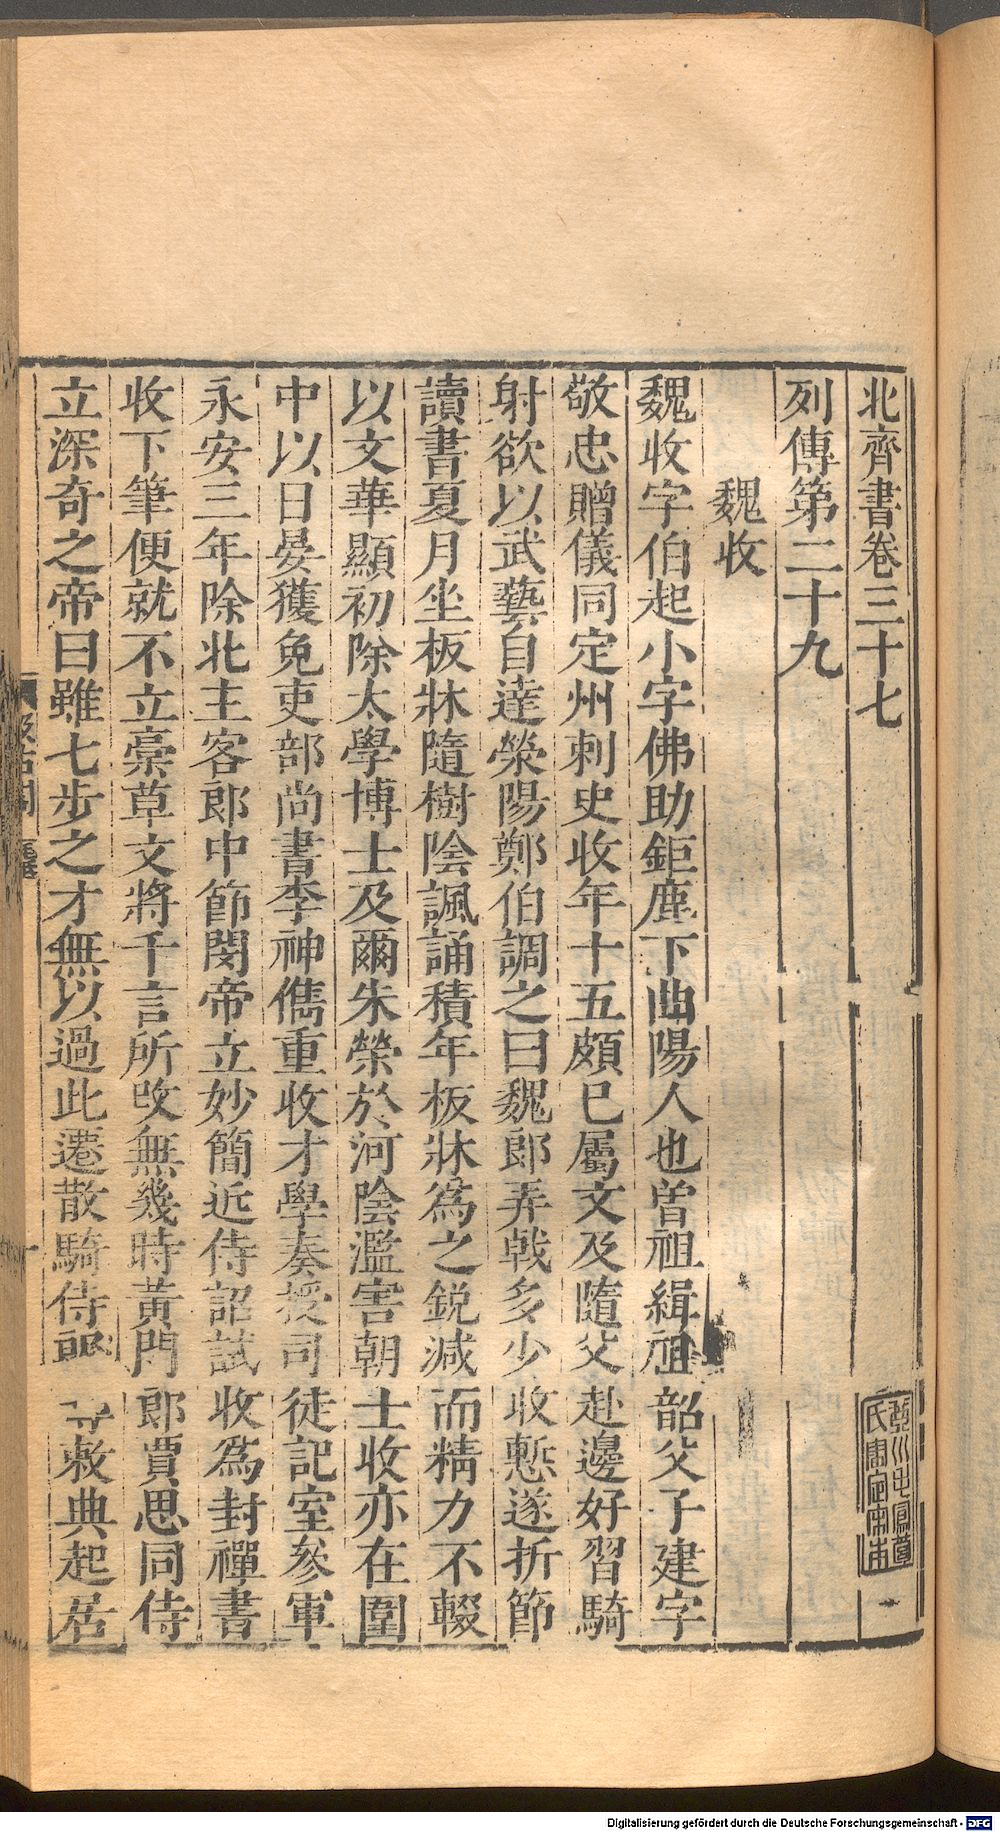 北齊書卷三十七
列傳第二十九
魏收
魏收字伯起小字佛助鉅鹿下曲陽人也曽祖緝祖韶父子建字
敬忠贈儀同定州刺史收年十五頗已屬文及隨父赴邊好習騎
射欲以武藝自達滎陽鄭伯調之曰魏郎弄戟多少收慙遂折節
讀書夏月坐板牀隨樹陰諷誦積年板牀為之鋭減而精力不輟
以文華顯初除太學博士及爾朱榮於河陰濫害朝士收亦在圍
中以日晏獲免吏部尚書李神儁重收才學奏授司徒記室參軍
永安三年除北主客郎中節閔帝立妙簡近侍詔試收為封禪書
收下筆便就不立稾草文將千言所改無幾時黃門郎賈思同侍
立深奇之帝曰雖七步之才無以過此遷散騎侍郎尋敕典起居
汲古閣
一
Digitalisierung gefördert durch die Deutsche Forschungsgemeinschaft - DFG